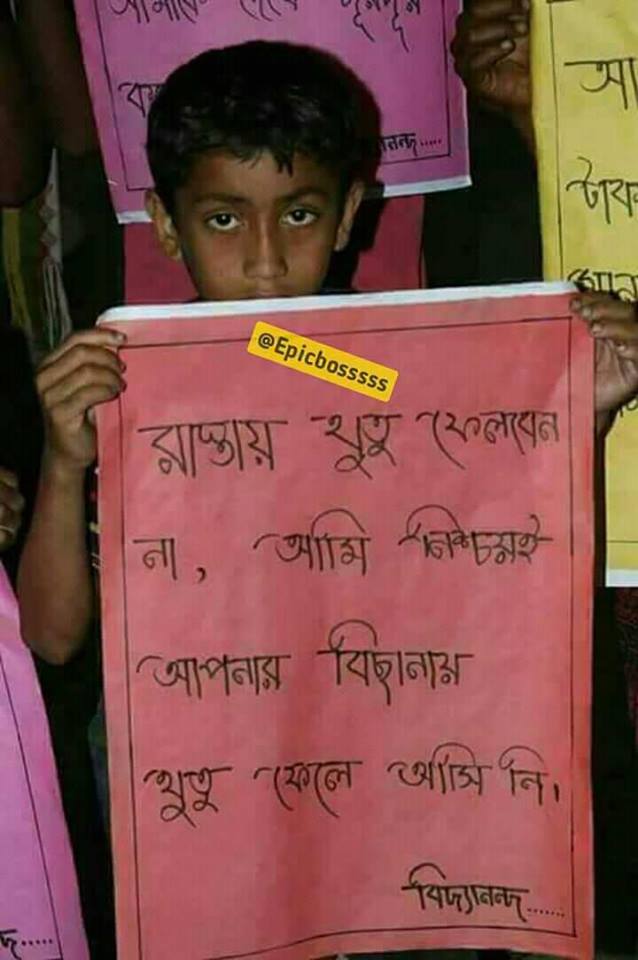 আমাকে দেখে দূরদূর
নন্দ.....
আ
টাক
@Epicbosssss
রাস্তায় থুতু ফেলবেন
না, আমি নিশ্চয়ই
আপনার বিছানায়
থুতু ফেলে আসি নি।
বিদ্যানন্দ......